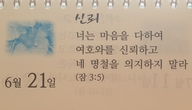 신뢰
너는 마음을 다하여
여호와를 신뢰하고
네 명철을 의지하지 말라
(잠 3:5)
6월 21일